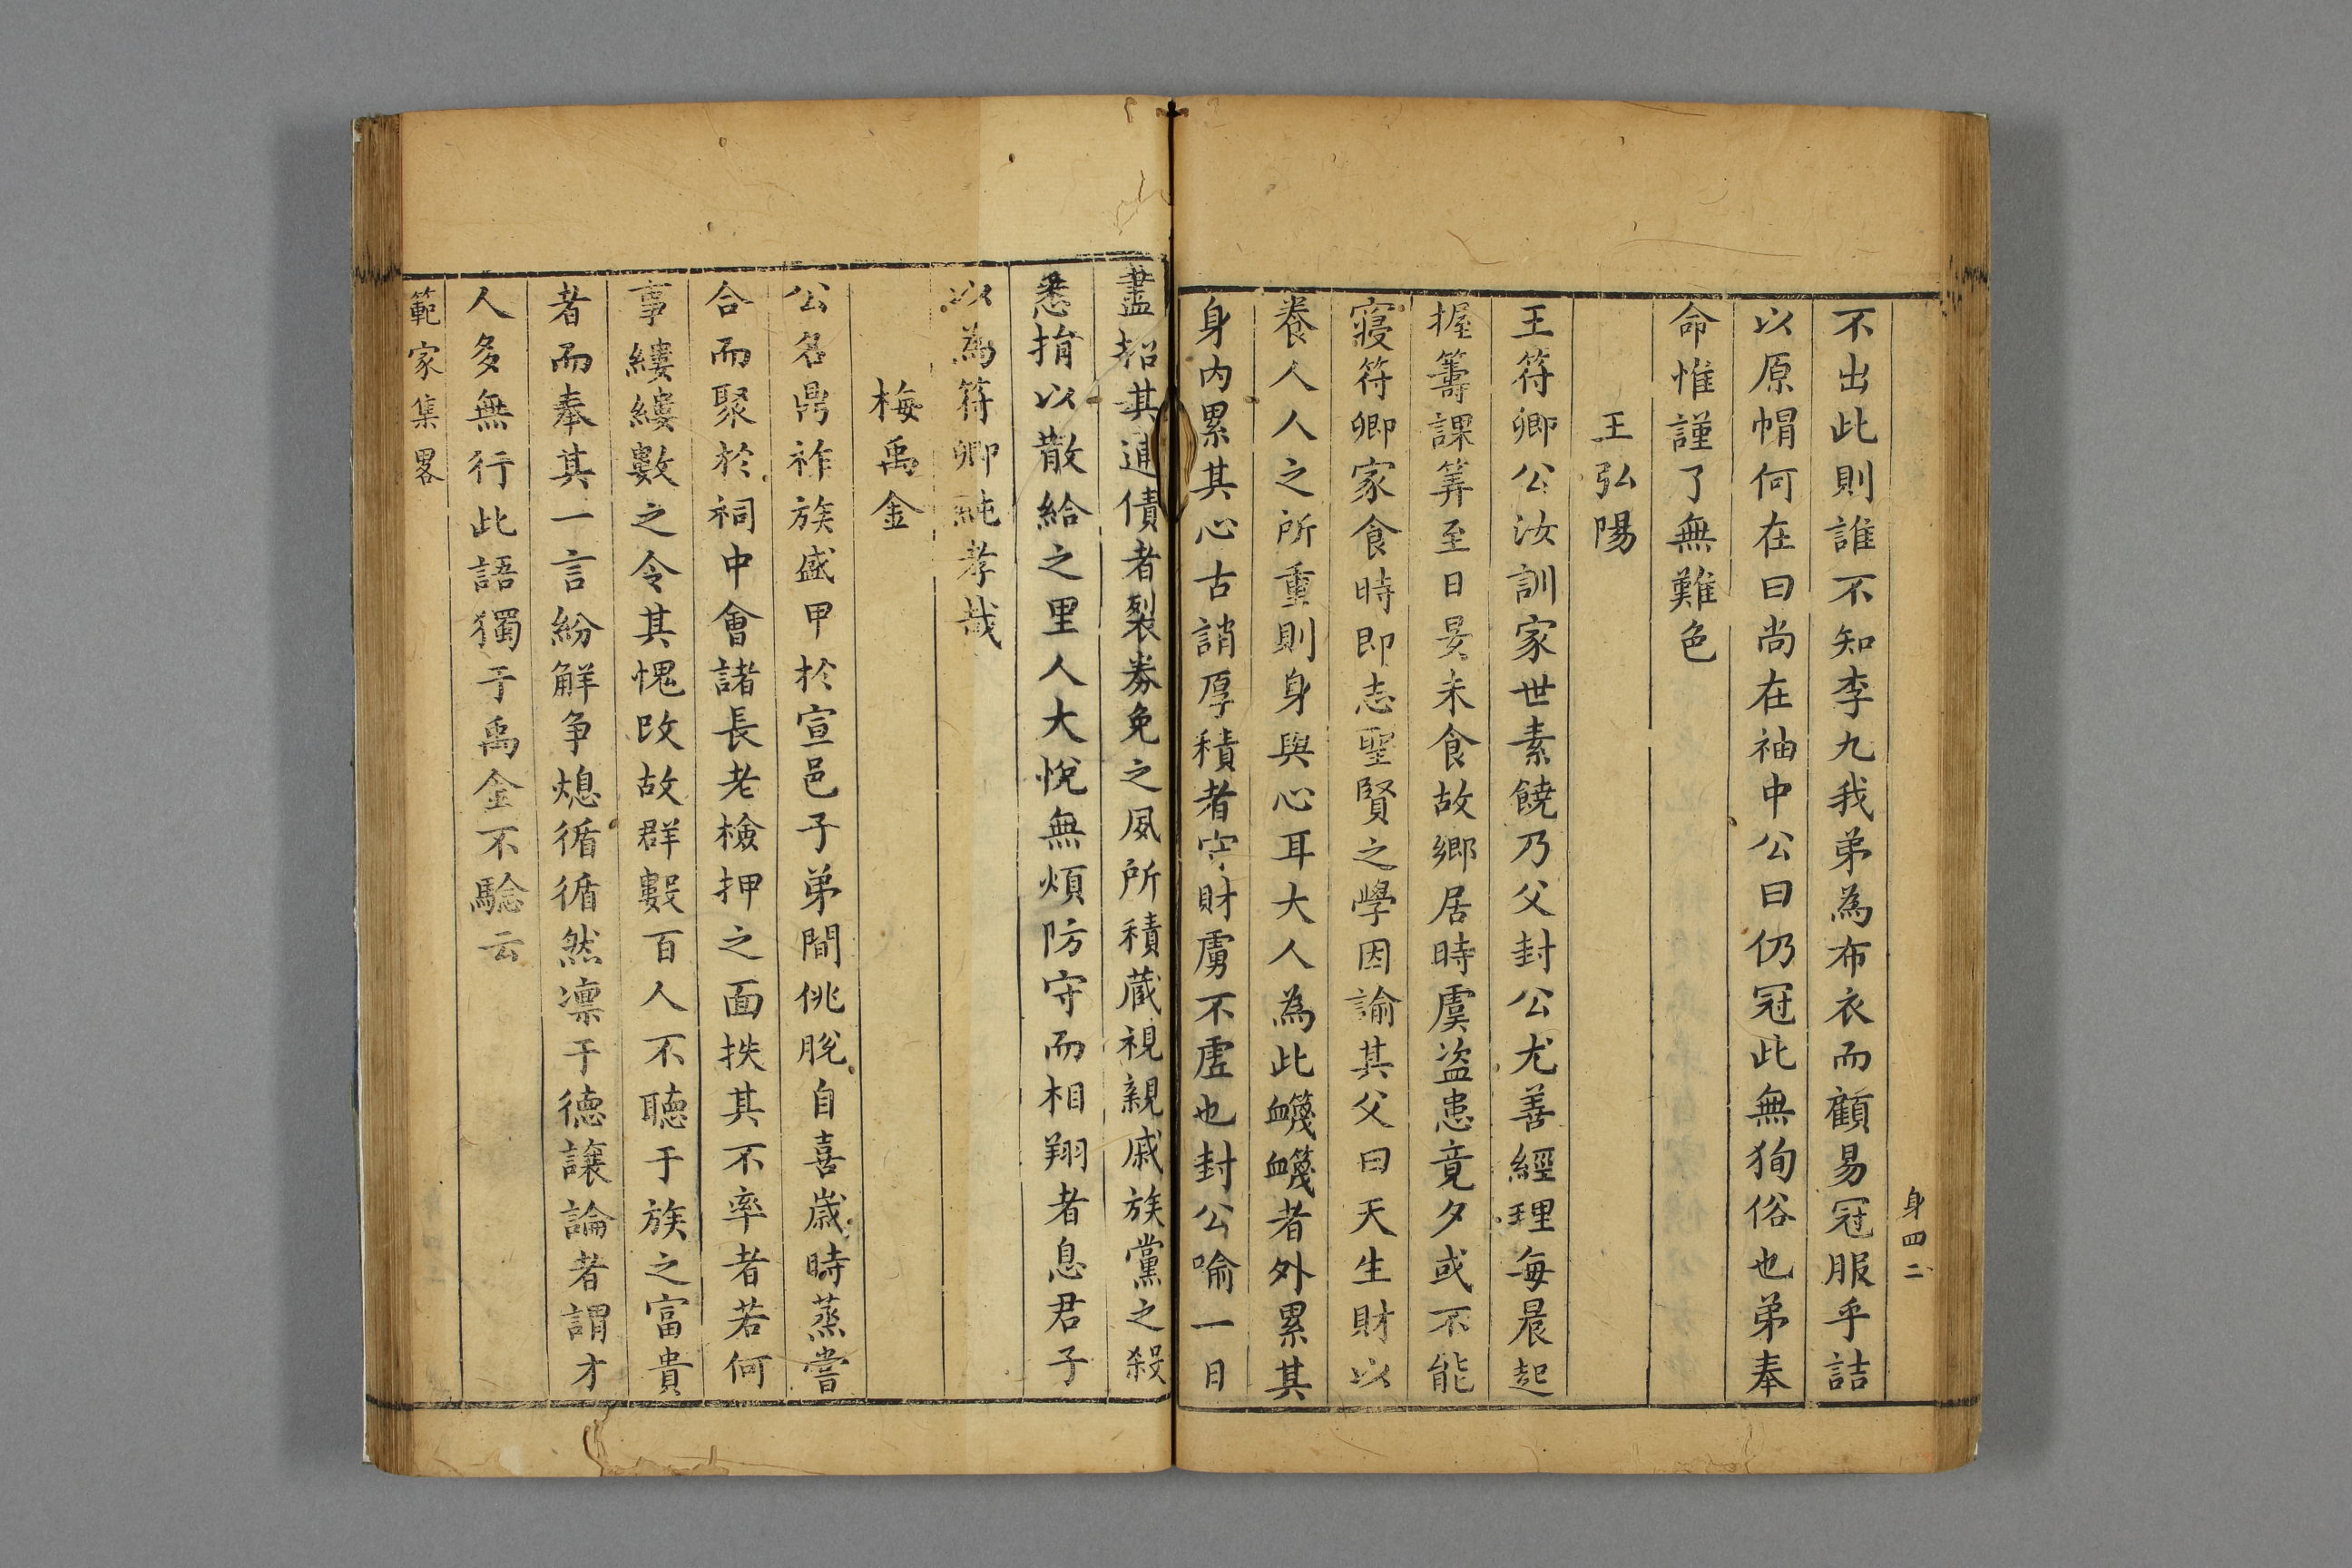 身四二
不出此則誰不知李九我弟為布衣而顧易冠服乎詰
以原帽何在曰尚在袖中公曰仍冠此無狥俗也弟奉
命惟謹了無難色
王弘陽
王符卿公汝訓家世素饒乃父封公尤善經理每晨起
握籌課筭至日晏未食故鄉居時虞盜患竟夕或不能
寢符卿家食時即志聖賢之學因諭其父曰天生財以
養人人之所重則身與心耳大人為此衊衊者外累其
身內累其心古誚厚積者守財虜不虛也封公喻一日
盡招其逋債者裂券免之夙所積蔵視親戚族黨之殺
悉捐以散給之里人大悅無煩防守而相翔者息君子
以為符卿純孝哉
梅禹金
公名鼎祚族盛甲於宣邑子弟間佻脫自喜歲時蒸嘗
合而聚於祠中會諸長老檢押之面抶其不率者若何
事縷縷數之令其愧改故群數百人不聽于族之富貴
者而奉其一言紛解爭熄循循然凛于德讓論者謂才
人多無行此語獨于禹金不驗云
範家集畧